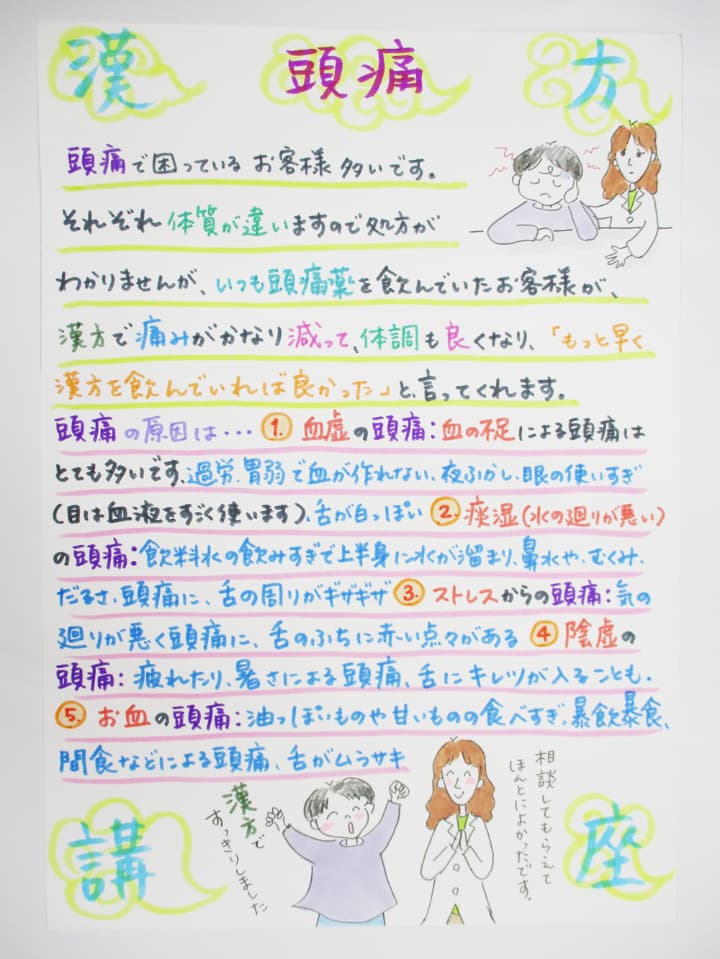 漢 頭痛 方
頭痛で困っている お客様 多いです。
それぞれ体質が違いますので処方が
わかりませんが、いつも頭痛薬を飲んでいたお客様が、
漢方で痛みがかなり減って、体調も良くなり、「もっと早く
漢方を飲んでいれば良かった」と言ってくれます。
頭痛の原因は・・・①血虚の頭痛:血の不足による頭痛は
とても多いです。過労、胃弱で血が作れない、夜ふかし、眼の使いすぎ
(目は血液をすごく使います)、舌が白っぽい ②痰湿(水の廻りが悪い)
の頭痛:飲料水の飲みすぎで上半身に水が溜まり、鼻水や、むくみ、
だるさ、頭痛に、舌の周りがギザギザ ③ストレスからの頭痛:気の
廻りが悪く頭痛に、舌のふちに赤い点々がある ④陰虚の
頭痛:疲れたり、暑さによる頭痛、舌にキレツが入ることも。
⑤お血の頭痛:油っぽいものや甘いものの食べすぎ、暴飲暴食、
間食などによる頭痛、舌がムラサキ
相談してもらえて
ほんとによかったです。
漢方で
すっきりしました
講 座